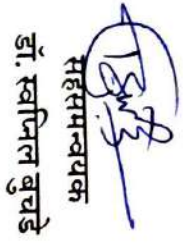 सहसमन्वयक
डॉ. स्वप्निल बुचडे